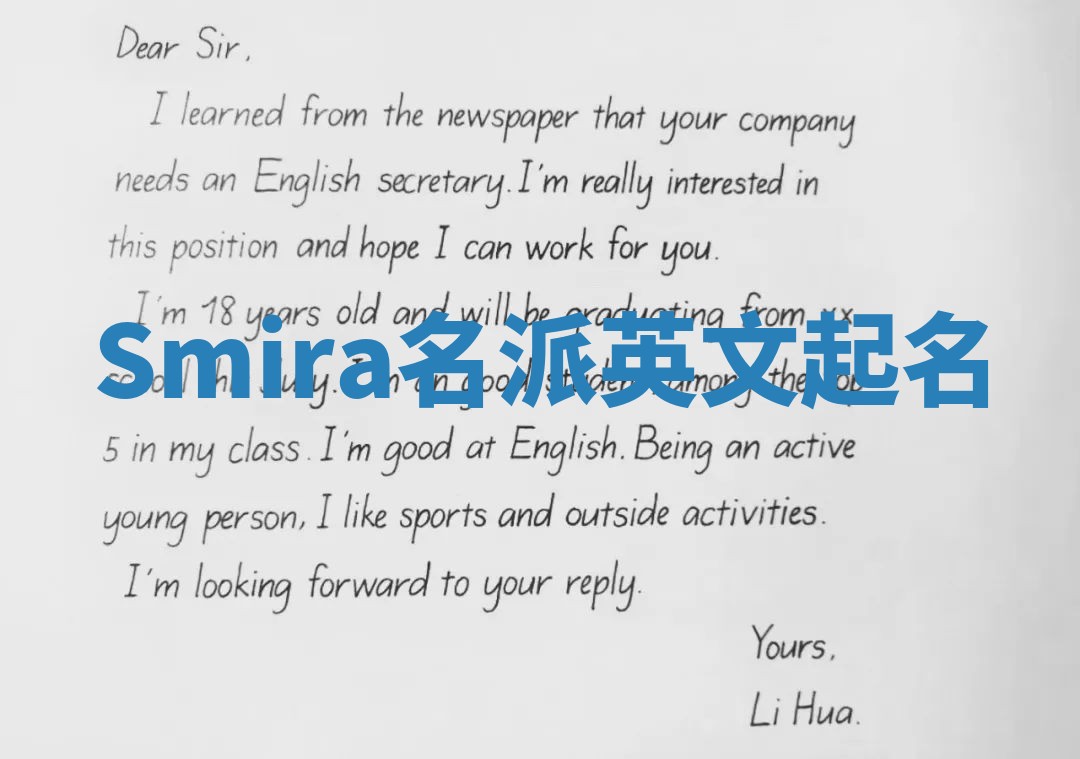 Dear Sir,
I learned from the newspaper that your company
needs an English secretary. I'm really interested in
this position and hope I can work for you.
I'm 18 years old and will be graduating from xx
Smira名派英文起名
July. I'm an good student among the top
5 in my class. I'm good at English. Being an active
young person, I like sports and outside activities.
I'm looking forward to your reply.
Yours,
Li Hua.